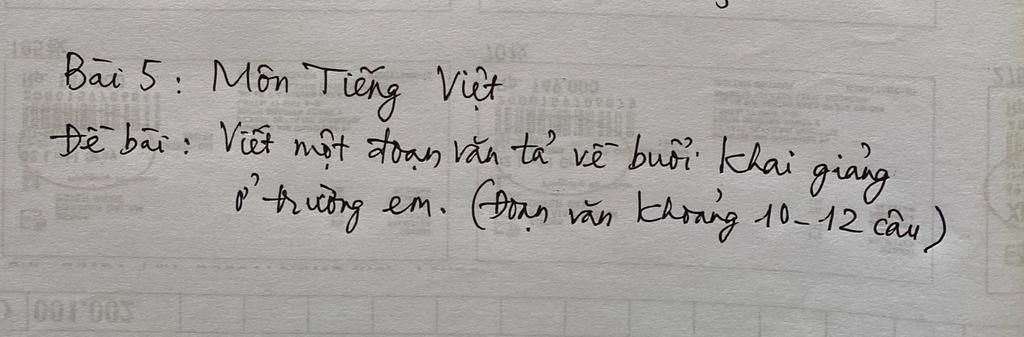 Bài 5: Môn Tiếng Việt
Đề bài: Viết một đoạn văn tả về buổi khai giảng
ở trường em. (Đoạn văn khoảng 10-12 câu)